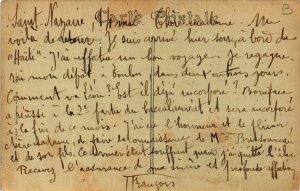 Carte Postale
B
Saint Nazaire
voilà de retour. Je suis arrivé hier soir, à bord de
"Haïti". J'ai effectué un bon voyage. Je regagne
rai mon dépôt à Toulon dans deux ou trois jours.
Comment va Léon? Est-il déjà incorporé? Boniface
a réussi à la 2e partie du baccalauréat et sera incorporé
à la fin de ce mois. J'ai eu l'honneur et le plaisir,
de faire la connaissance de Mme
et de son fils. Ce dernier était souffrant quand j'ai quitté
Recevez l'assurance de ma sincère et profonde affection
François